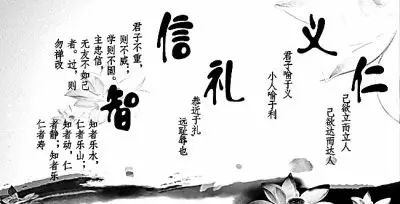 仁
己欲立而立人
己欲达而达人
义
君子喻于义
小人喻于利
礼
恭近于扎
远耻辱也
信
君子不重,
则不威;
学则不固。
主忠信,
无友不如己
者。过,则
勿禅改
智
知者乐水,
仁者乐山;
知者动,仁
者静;知者乐
仁者寿